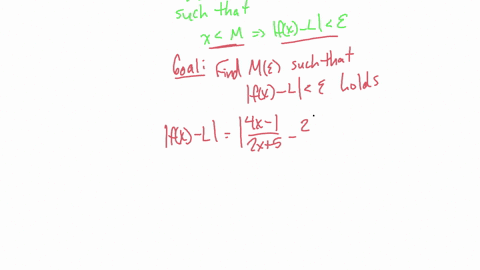 such that
x < M ⇒ |f(x)-L| < ε
Goal: Find M(ε) such that
|f(x)-L| < ε holds
|f(x)-L| = |4x-1/2x+5 - 2